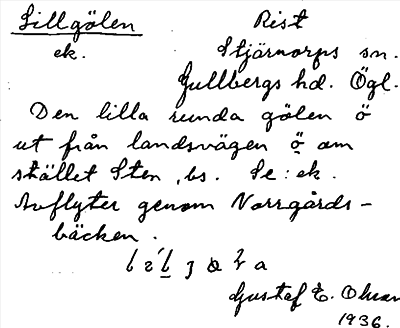 Lillgölen Rist
ek. Stjärnorps sn.
Gullbergs hd. Ögl.
Den lilla runda gölen ö
ut från landsvägen ö om
stället Sten, bs. Se: ek.
Avflyter genom Norrgårds-
bäcken.
Gustaf E.
1936.